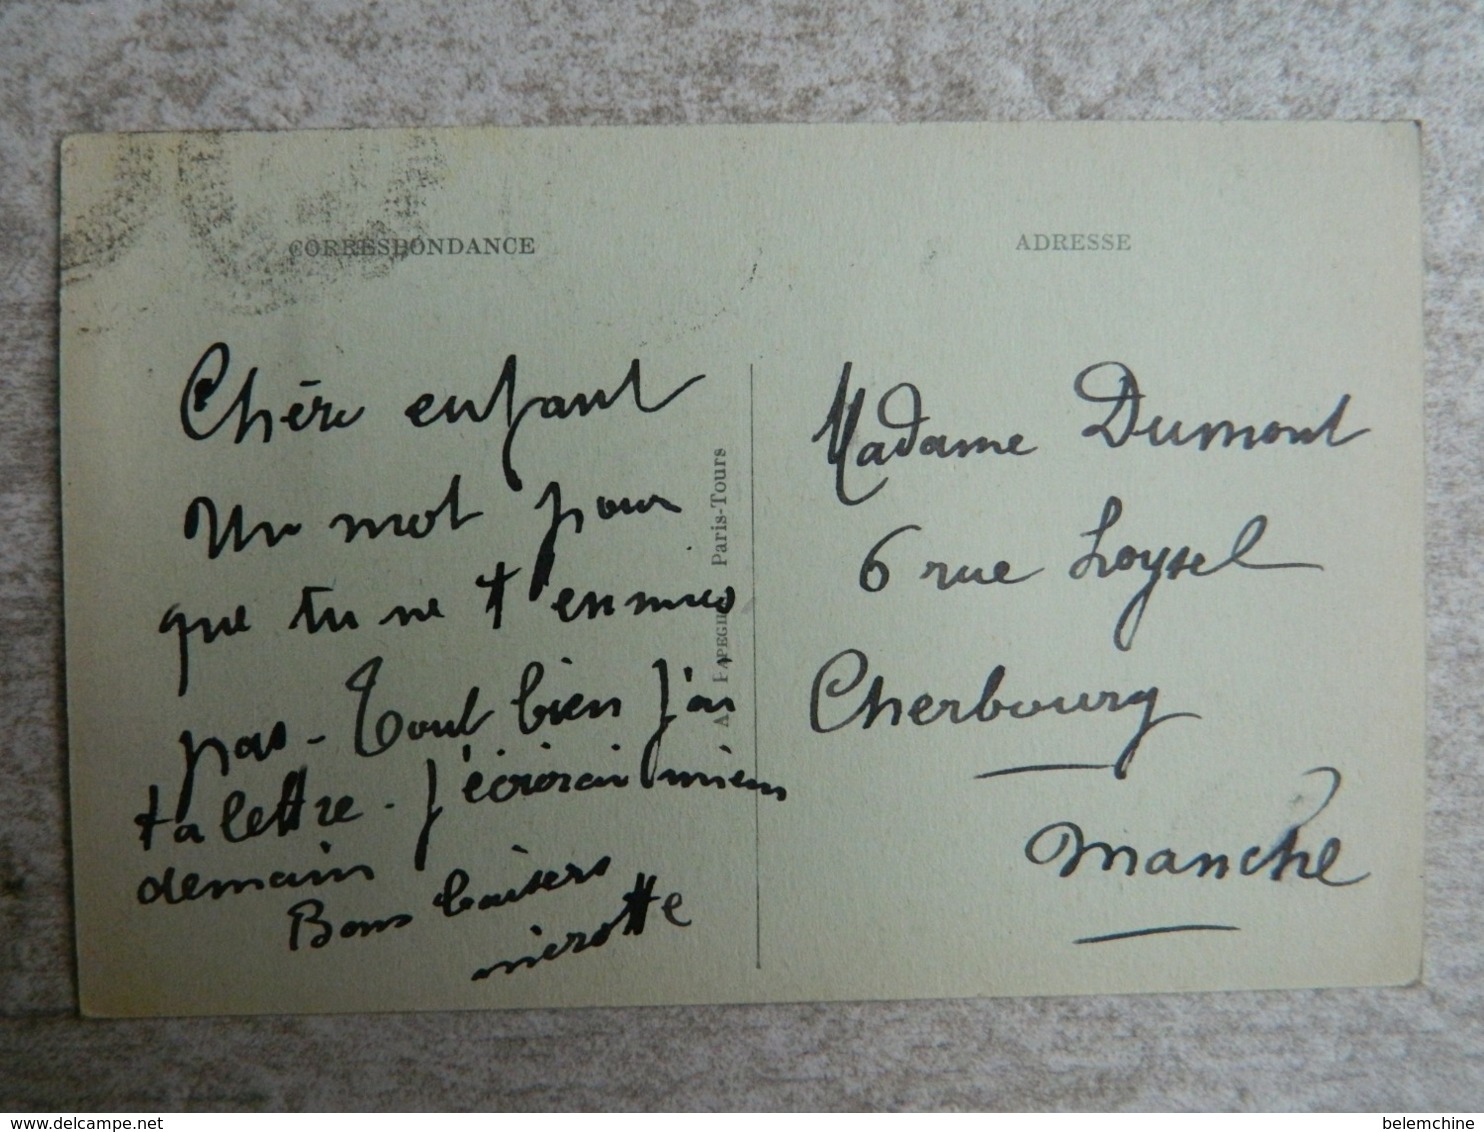 CORRESPONDANCE
Chère enfant
Un mot pour
que tu ne t'ennuies
pas - Tout bien J'ai
ta lettre - J'écrirai mieux
demain
Bons baisers
merotte
A. PAPEGHIN Paris-Tours
ADRESSE
Madame Dumont
6 rue Loysel
Cherbourg
Manche
delcampe.net
belemchine